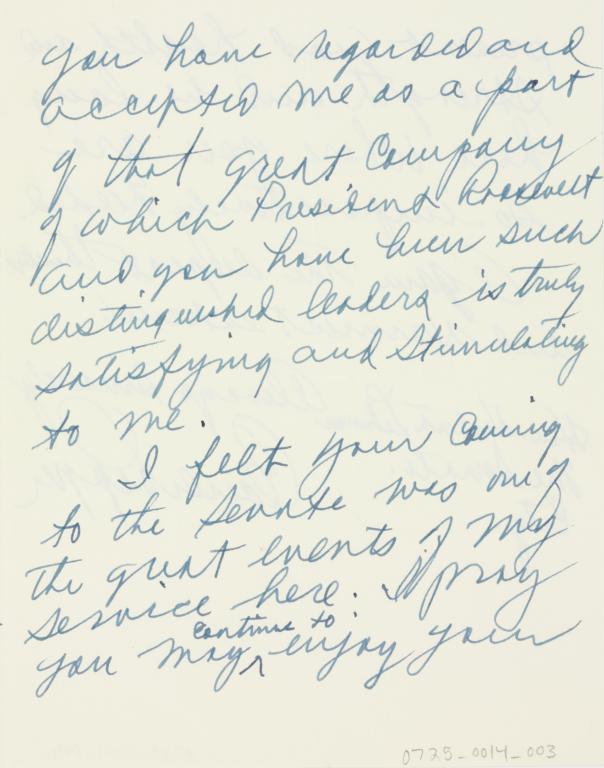 you have regarded and
accepted me as a part
of that great Company
of which President Roosevelt
and you have been such
distinguished leaders is truly
satisfying and stimulating
to me.
I felt your coming
to the Senate was one of
the great events of my
service here. I pray
continue to
you may ^ enjoy your
0725-0014-003